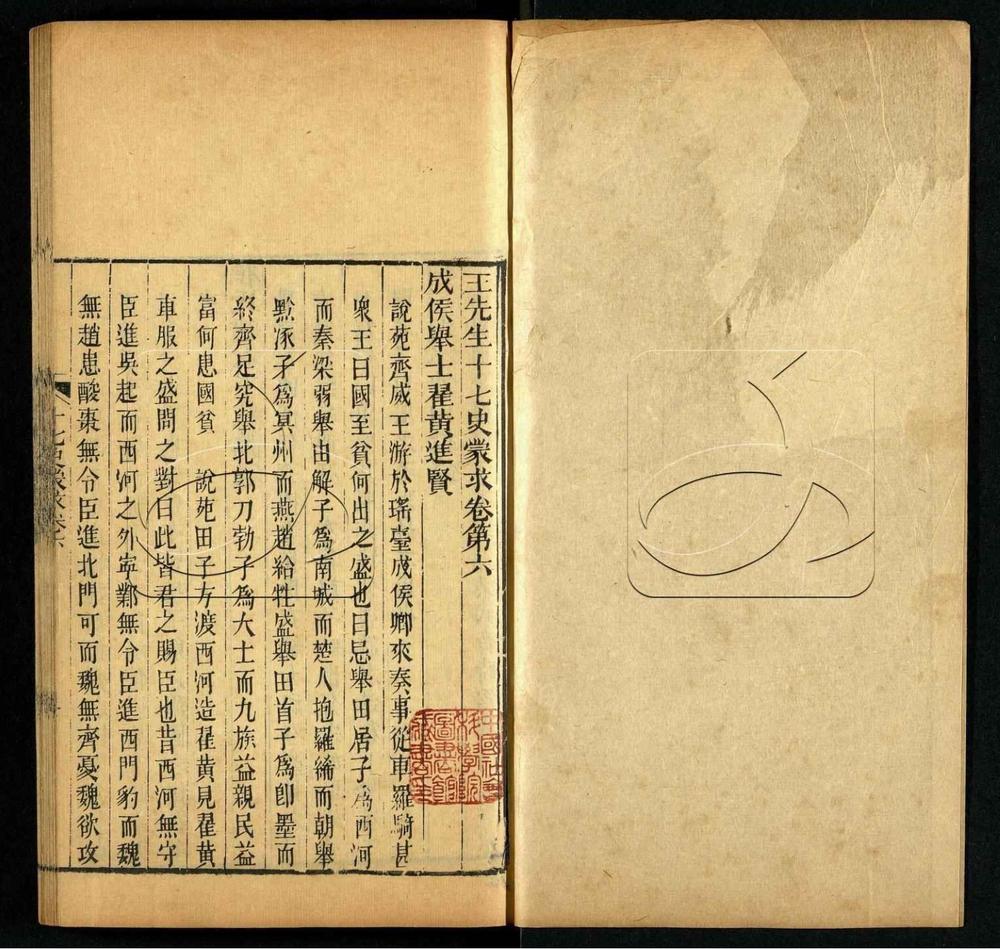 王先生十七史蒙求卷第六
成侯舉士翟黃進賢
說苑齊威王游於瑤臺成侯卿來奏事從車羅騎甚
衆王曰國至貧何出之盛也曰忌舉田居子為西河
而秦梁弱舉由解子為南城而楚人抱羅綺而朝舉
黔涿子為冥州而燕趙給牲盛舉田首子為即墨而
終齊足究舉北郭刀勃子為大士而九族益親民益
富何患國貧 說苑田子方渡西河造翟黃見翟黃
車服之盛問之對曰此皆君之賜臣也昔西河無守
臣進吳起而西河之外寧鄴無令臣進西門豹而魏
無趙患酸棗無令臣進北門可而魏無齊憂魏欲攻
十七史蒙求卷六
中國社會
科學院
圖書館
藏書章